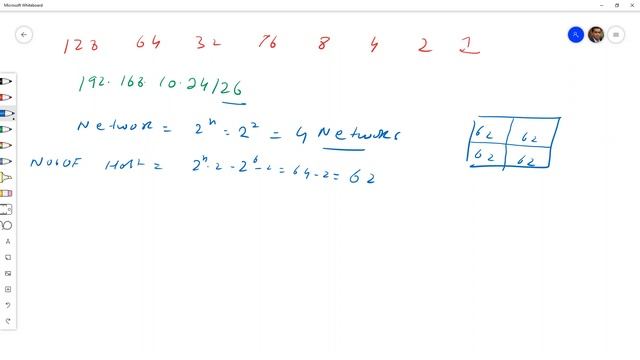 Microsoft Whiteboard
128 64 32 16 8 4 2 1
192.168.10.24/26
Network = 2^n = 2^2 = 4 Networks
No of Host = 2^n-2 = 2^6-2 = 64-2 = 62
62 62
62 62